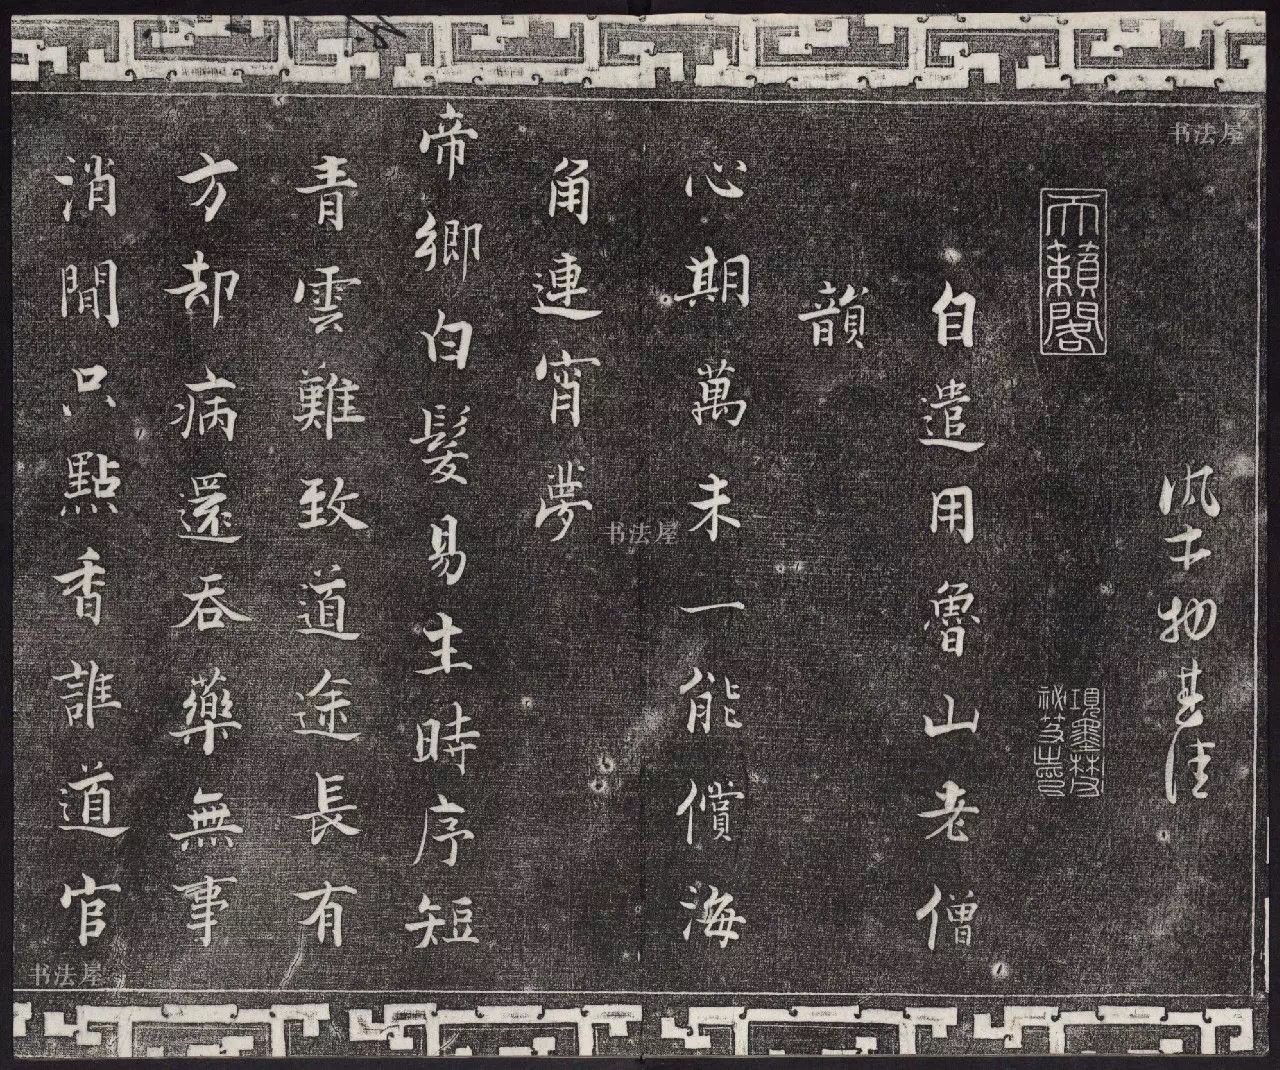 风土物甚佳
天籟閣
項墨林
祕笈之印
自遣用魯山老僧
韻
心期萬未一能償海
角連宵夢
帝鄉白髮易生時序短
青雲難致道途長有
方却病還吞藥無事
消閒只點香誰道官
书法屋
书法屋
书法屋